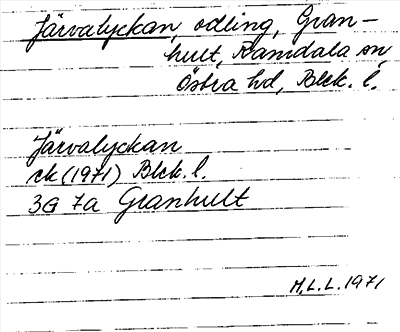 Järvalyckan, odling, Gran-
hult, Ramdala sn
Östra hd, Blek. l.
Järvalyckan
ek (1971) Blek. l.
3G 7a Granhult
M.L.L. 1971